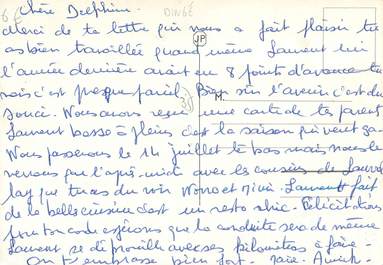 6€ DINGÉ
Chère Delphine.
Merci de ta lettre qui nous a fait plaisir tu
as bien travaillée quand même Laurent lui
l'année dernière avait eu 8 points d'avance tu
vois c'est presque pareil. Bien sûr l'avenir c'est du
souci. Nous avons reçu une carte de tes parents
Laurent bosse à pleins c'est la saison qui veut ça
Nous passerons le 14 juillet là bas mais nous ne
verrons que l'après-midi avec les cousins de
que tu as du voir Nono et Laurent fait
de la belle cuisine c'est un resto chic. Félicitations
pour ton code espérons que la conduite sera de même
Laurent se débrouille avec ses kilomètres à faire -
On t'embrasse bien fort.
JP
M.